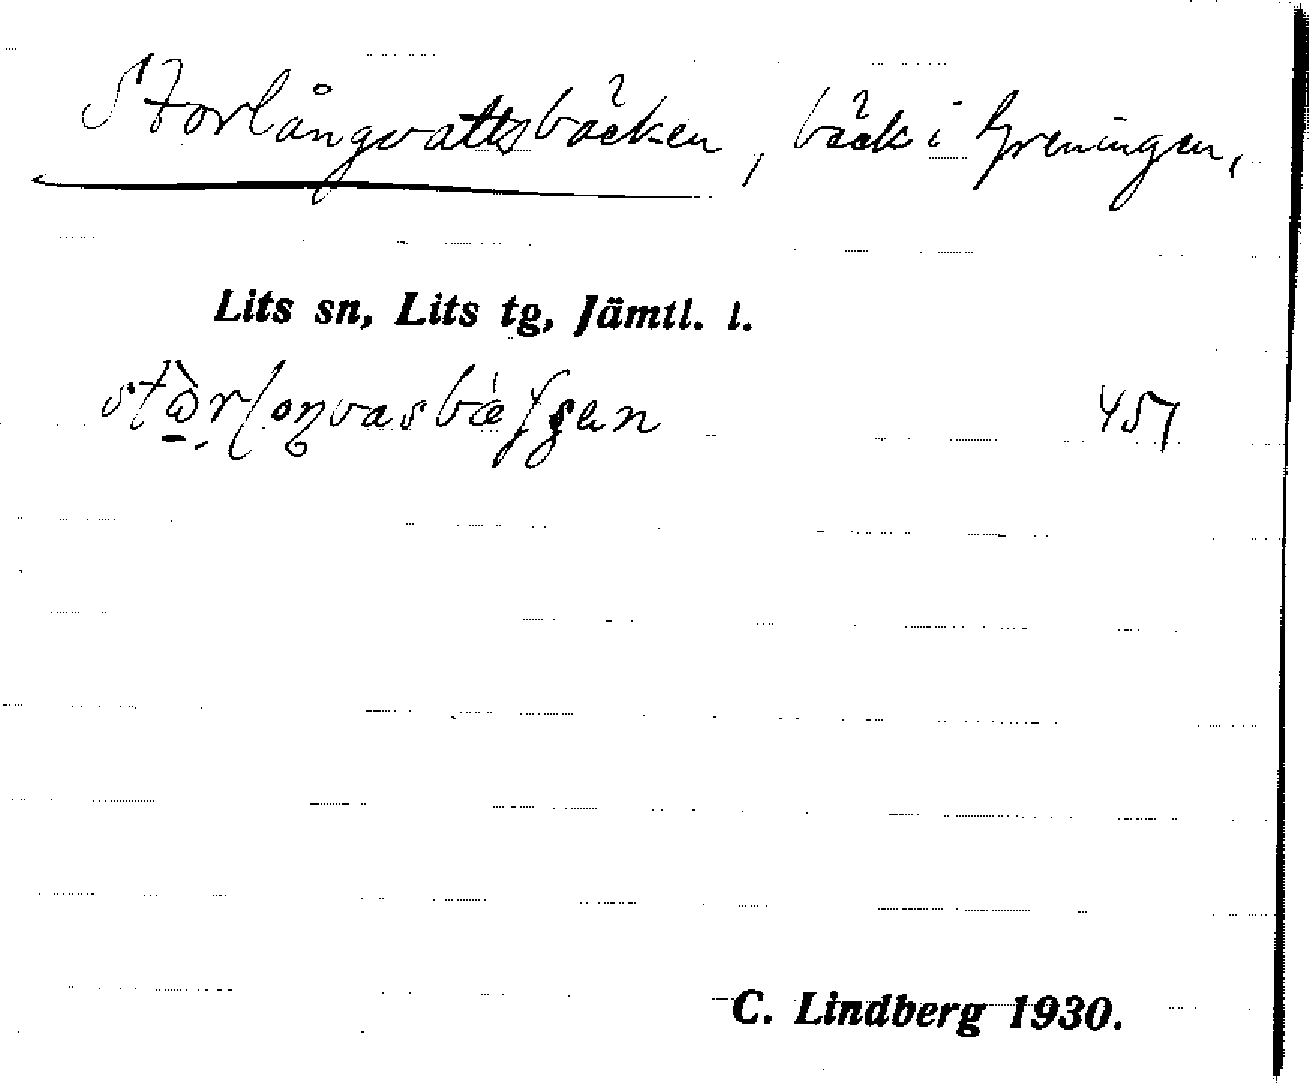 Storlångvattsbäcken, bäck i Greningen,
Lits sn, Lits tg, Jämtl. l.
457
C. Lindberg 1930.